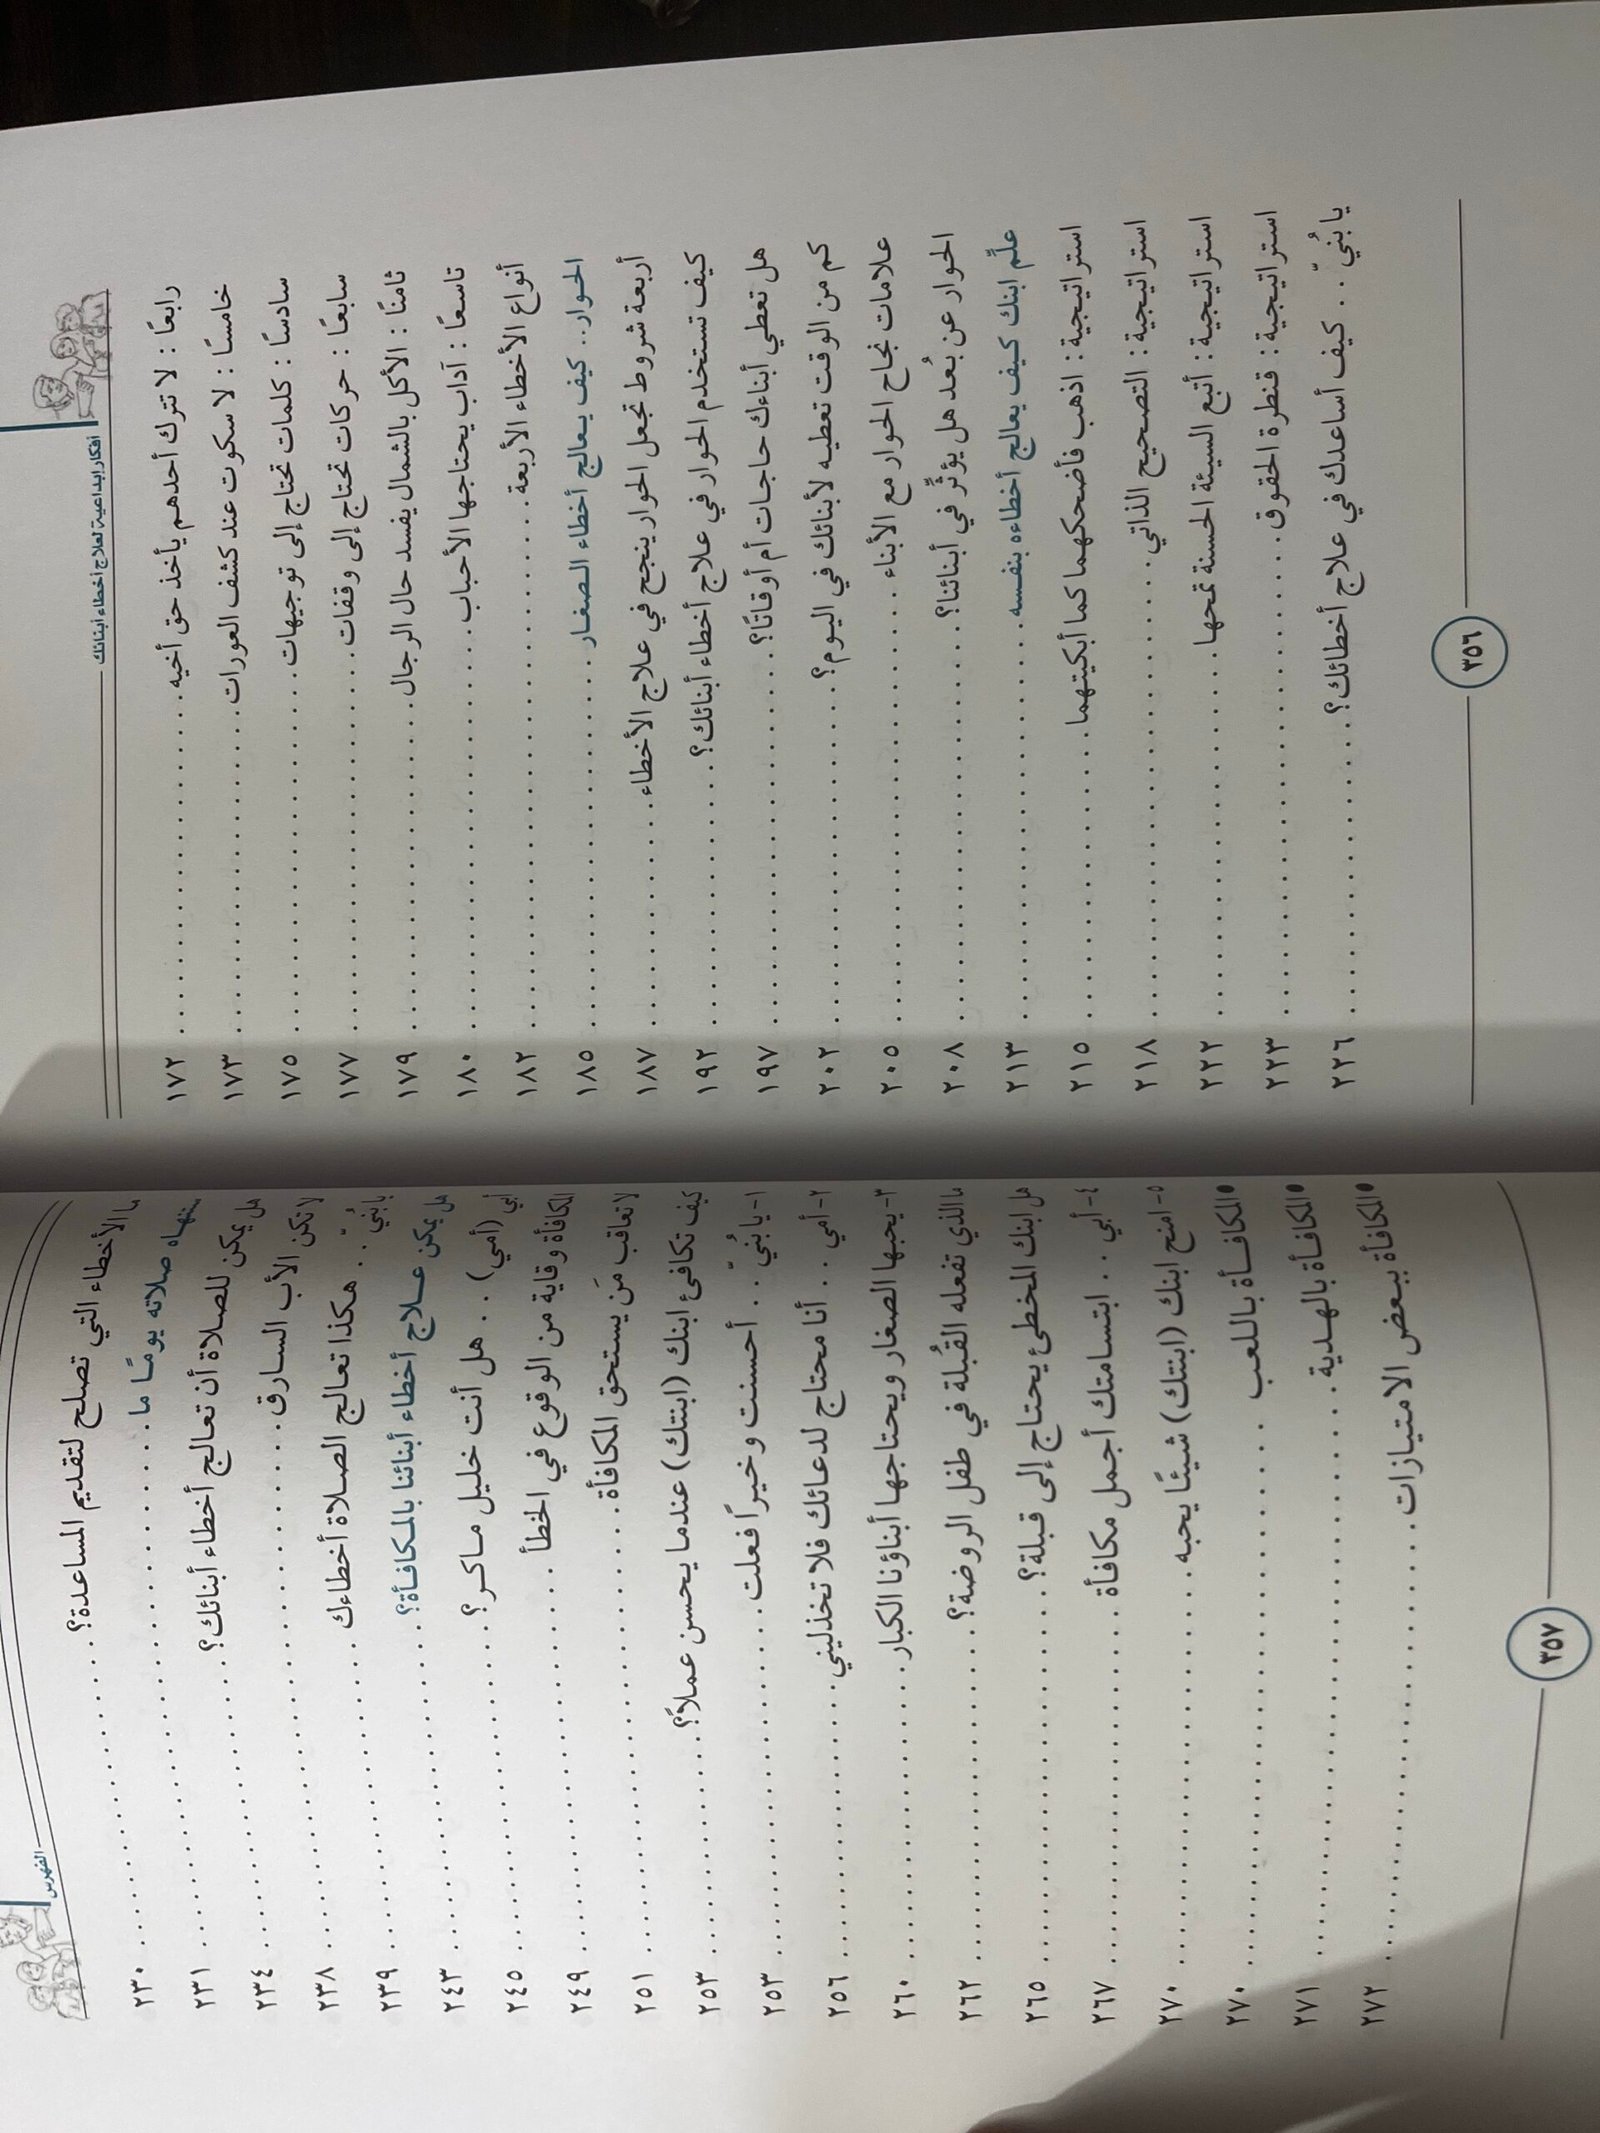 أفكار إبداعية لعلاج أخطاء أبنائك
رابعًا : لا تترك أحدهم يأخذ حق أخيه ........ ١٧٢
خامسًا : لا سكوت عند كشف العورات ........ ١٧٣
سادسًا : كلمات تحتاج إلى توجيهات ........ ١٧٥
سابعًا : حركات تحتاج إلى وقفات ........ ١٧٧
ثامنًا : الأكل بالشمال يفسد حال الرجال ........ ١٧٩
تاسعًا : آداب يحتاجها الأحباب ........ ١٨٠
أنواع الأخطاء الأربعة ........ ١٨٢
الحوار .. كيف يعالج أخطاء الصغار ........ ١٨٥
أربعة شروط تجعل الحوار ينجح في علاج الأخطاء ........ ١٨٧
كيف تستخدم الحوار في علاج أخطاء أبنائك؟ ........ ١٩٢
هل تعطي أبناءك حاجات أم أوقاتًا؟ ........ ١٩٧
كم من الوقت تعطيه لأبنائك في اليوم؟ ........ ٢٠٢
علامات نجاح الحوار مع الأبناء ........ ٢٠٥
الحوار عن بُعد هل يؤثِّر في أبنائنا؟ ........ ٢٠٨
علِّم ابنك كيف يعالج أخطاءه بنفسه ........ ٢١٣
استراتيجية : اذهب فأضحكهما كما أبكيتهما ........ ٢١٥
استراتيجية : التصحيح الذاتي ........ ٢١٨
استراتيجية : أتبع السيئة الحسنة تمحها ........ ٢٢٢
استراتيجية : قنطرة الحقوق ........ ٢٢٣
يا بُنيّ .. كيف أساعدك في علاج أخطائك؟ ........ ٢٢٦
٣٥٦
الفهرس
ما الأخطاء التي تصلح لتقديم المساعدة؟ ........ ٢٣٠
ستنهاه صلاته يومًا ما ........ ٢٣١
هل يمكن للصلاة أن تعالج أخطاء أبنائك؟ ........ ٢٣٤
لا تكن الأب السارق ........ ٢٣٨
يا بُنيّ .. هكذا تعالج الصلاة أخطاءك ........ ٢٣٩
هل يمكن علاج أخطاء أبنائنا بالمكافأة؟ ........ ٢٤٣
أبي (أمي) .. هل أنت خليل ماكر؟ ........ ٢٤٥
المكافأة وقاية من الوقوع في الخطأ ........ ٢٤٩
لا تعاقب مَن يستحق المكافأة ........ ٢٥١
كيف تكافئ ابنك (ابنتك) عندما يحسن عملاً؟ ........ ٢٥٣
١- يا بُنيّ .. أحسنت وخيرًا فعلت ........ ٢٥٣
٢- أمي .. أنا محتاج لدعائك فلا تخذليني ........ ٢٥٦
٣- يحبها الصغار ويحتاجها أبناؤنا الكبار ........ ٢٦٠
ما الذي تفعله القُبلة في طفل الروضة؟ ........ ٢٦٢
هل ابنك المخطئ يحتاج إلى قبلة؟ ........ ٢٦٥
٤- أبي .. ابتسامتك أجمل مكافأة ........ ٢٦٧
٥- امنح ابنك (ابنتك) شيئًا يحبه ........ ٢٧٠
● المكافأة باللعب ........ ٢٧٠
● المكافأة بالهدية ........ ٢٧١
● المكافأة ببعض الامتيازات ........ ٢٧٢
٣٥٧